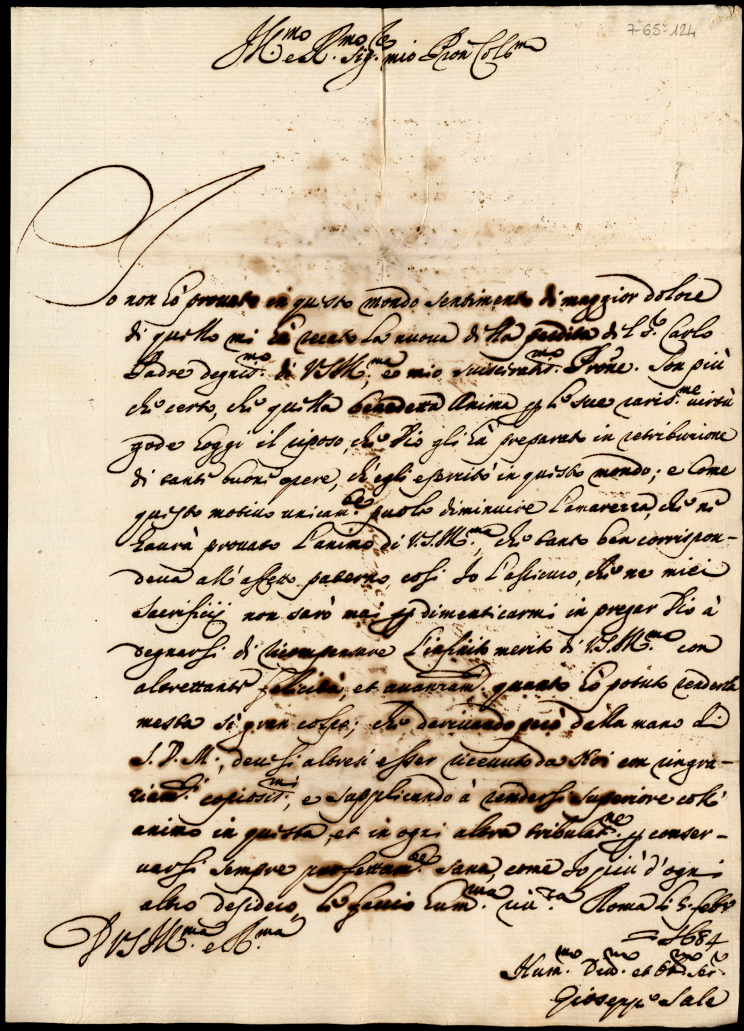 7-65-124
Ill.mo e R.mo Sig.re mio Pron Col.mo
Io non hò prouato in questo mondo sentimento di maggior dolore
di quello mi hà recato la nuoua della perdita del S.r Carlo
Padre degnis.mo di V.S.Ill.ma, e mio suisceratis.mo Prone. Son più
che certo, che quella benedetta Anima p le sue raris.me uirtù
gode hoggi il riposo, che Dio gli hà preparato in retribuzione
di tante buone opere, ch'egli esercitò in questo mondo; e come
questo motiuo unicam.te puole diminuire l'amarezza, che ne
haurà prouato l'animo di V.S.Ill.ma, che tanto ben corrispon-
deua all'affetto paterno, così Io l'assicuro, che ne miei
sacrificij non sarò mai p dimenticarmi in pregar Dio à
degnarsi di ricompensare l'infinito merito di V.S.Ill.ma con
altrettante felicità, et auanzam.ti quanto hò potuto renderla
mesta sì gran colpo; che deriuando però dalla mano di
S.D.M., deuesi altresì esser riceuuto da Noi con ringra-
ziam.ti copiosis.mi, e supplicando à rendersi superiore coll'
animo in questa, et in ogni altra tribulat.ne, p conser-
uarsi sempre perfettam.te sana, come Io più d'ogni
altro desidero, le faccio hum.ma riu.za Roma li 5 febr.o
1684
D V.S.Ill.ma e R.ma
Hum.mo Deu.mo et Obl.mo Ser.re
Gioseppe Sale